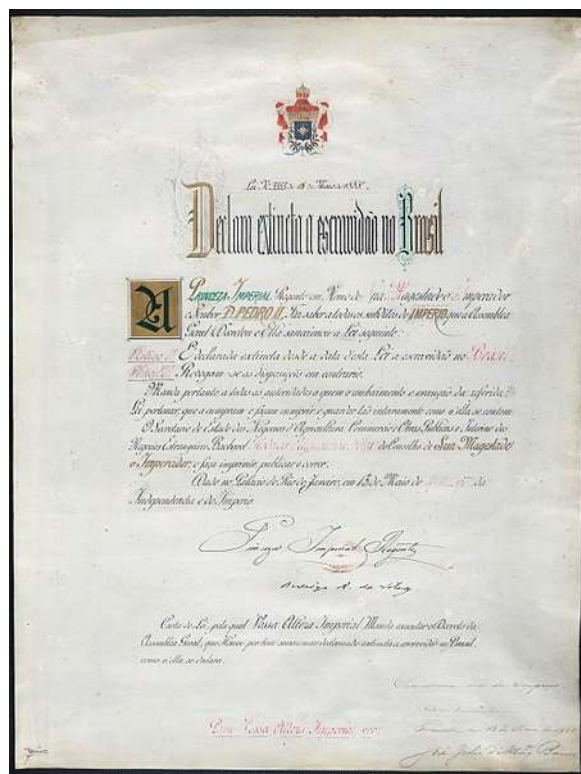 Lei Nº 3353 de 13 de Maio de 1888.
Declara extincta a escravidão no Brasil
A PRINCEZA IMPERIAL Regente em Nome de Sua Magestade o Imperador
o Senhor D. PEDRO II, Faz saber a todos os subditos do IMPERIO que a Assembléa
Geral Decretou e Ella sanccionou a Lei seguinte:
Artigo 1º É declarada extincta desde a data desta Lei a escravidão no Brazil.
Artigo 2º Revogam-se as disposições em contrario.
Manda portanto a todas as autoridades a quem o conhecimento e execução da referida
Lei pertencer, que a cumpram e façam cumprir e guardar tão inteiramente como n'ella se contem.
O Secretario de Estado dos Negocios d'Agricultura, Commercio e Obras Publicas e Interino dos
Negocios Estrangeiros, Bacharel do Conselho de Sua Magestade
o Imperador, o faça imprimir, publicar e correr.
Dado no Palacio do Rio de Janeiro, em 13 de Maio de da
Independencia e do Imperio.
Princeza Imperial Regente
Rodrigo A. da Silva
Carta de Lei, pela qual Vossa Alteza Imperial Manda executar o Decreto da
Assembléa Geral, que Houve por bem sanccionar declarando extincta a escravidão no Brazil,
como n'ella se declara.
Para Vossa Alteza Imperial ver